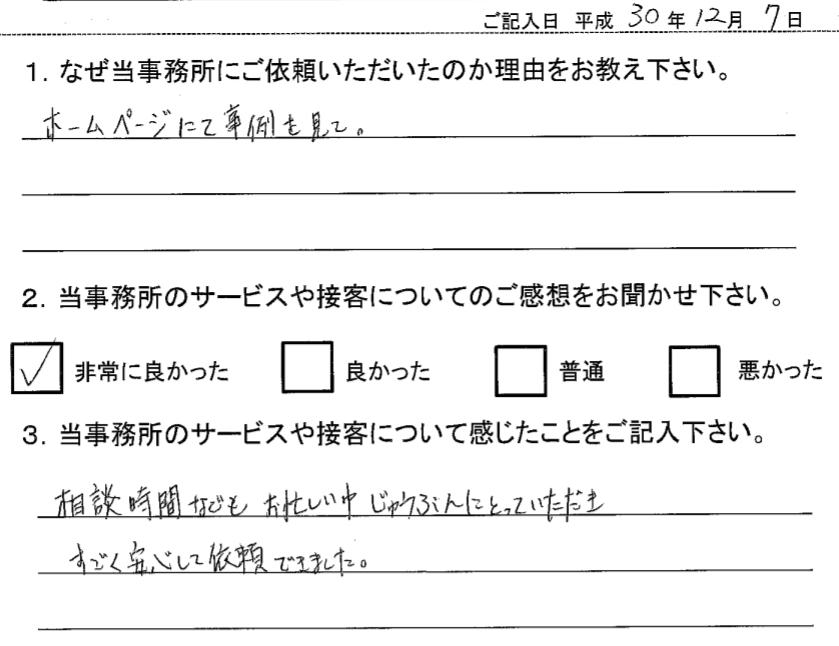 ご記入日 平成 30 年 12 月 7 日
1. なぜ当事務所にご依頼いただいたのか理由をお教え下さい。
ホームページにて事例を見て。
2. 当事務所のサービスや接客についてのご感想をお聞かせ下さい。
✓ 非常に良かった 良かった 普通 悪かった
3. 当事務所のサービスや接客について感じたことをご記入下さい。
相談時間なども お忙しい中 じゅうぶんにとっていただき
すごく安心して依頼できました。